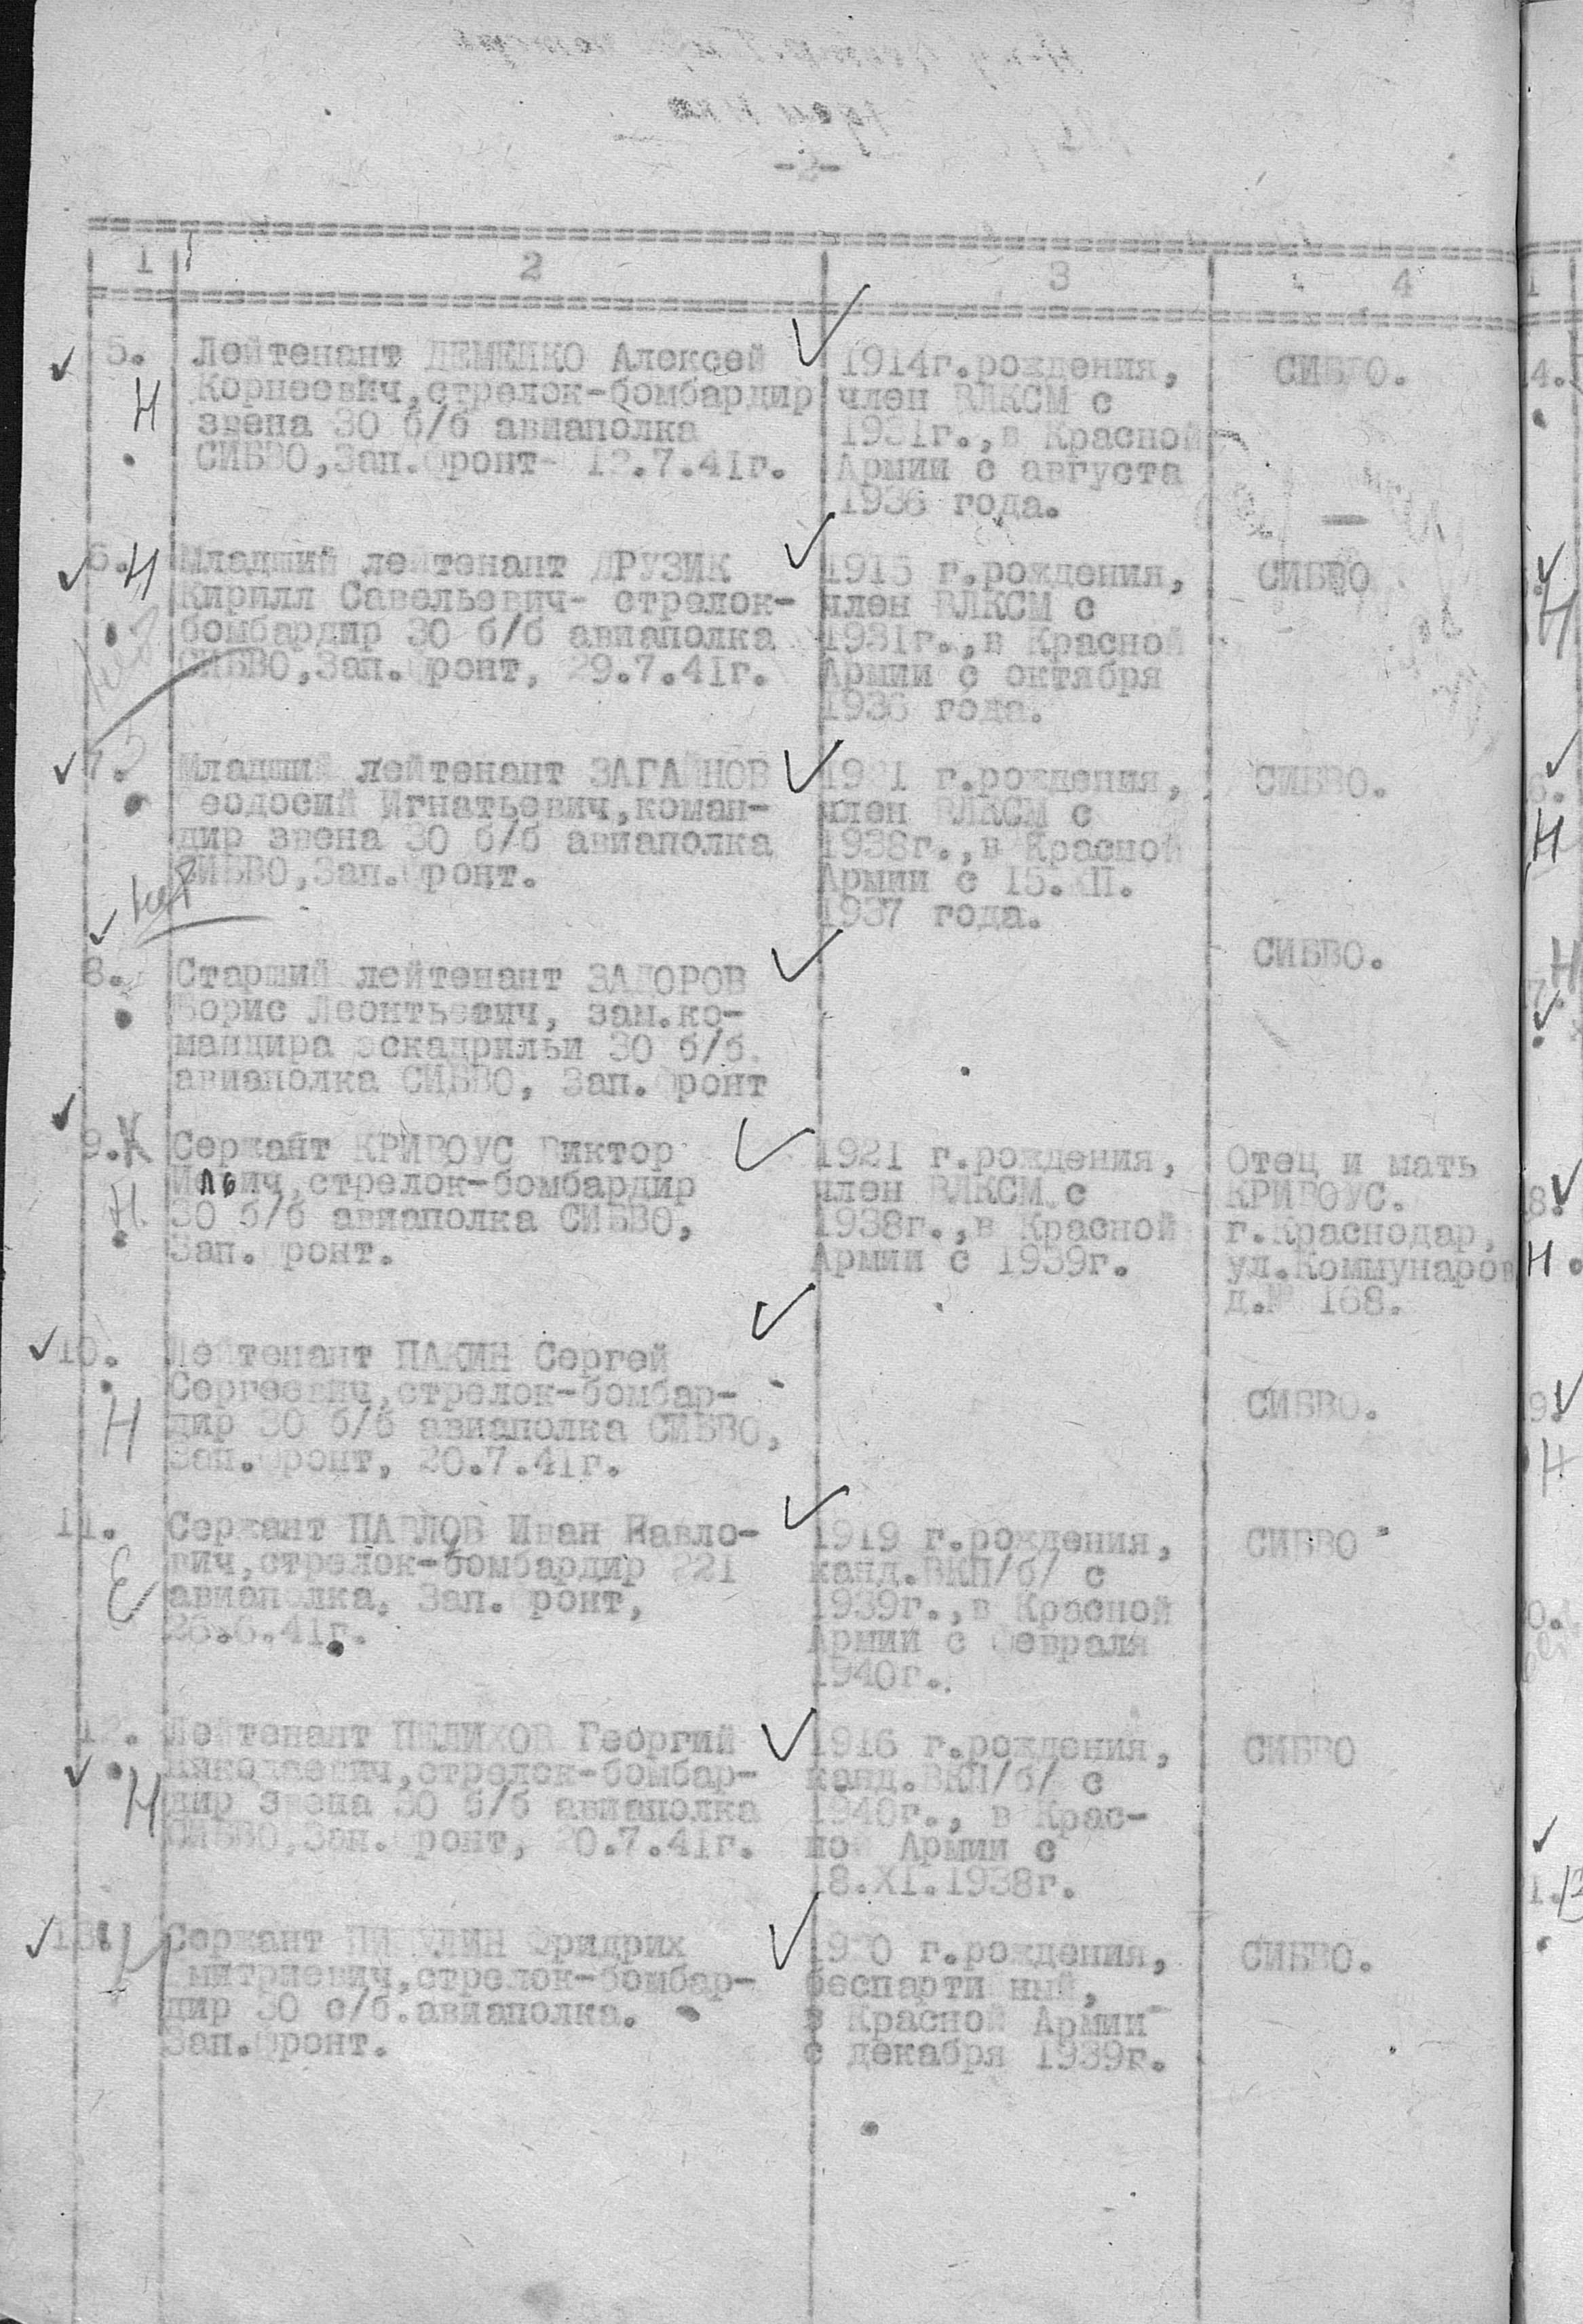 -2-
1 2 3 4
5. Лейтенант ДЕМЕНКО Алексей
Корнеевич,стрелок-бомбардир
звена 30 б/б авиаполка
СИБВО,Зап.фронт- 12.7.41г.
1914г.рождения,
член ВЛКСМ с
1931г.,в Красной
Армии с августа
1936 года.
СИБВО.
6. Н Младший лейтенант ДРУЗИК
Кирилл Савельевич- стрелок-
бомбардир 30 б/б авиаполка
СИБВО,Зап.фронт, 29.7.41г.
1915 г.рождения,
член ВЛКСМ с
1931г.,в Красной
Армии с октября
1936 года.
СИБВО
Н
7. Младший лейтенант ЗАГАЙНОВ
еодосий Игнатьевич,коман-
дир звена 30 б/б авиаполка
СИБВО,Зап.фронт.
1921 г.рождения,
член ВЛКСМ с
1938г.,в Красной
Армии с 15.XII.
1937 года.
СИБВО.
8. Старший лейтенант
Борис Леонтьевич, зам.ко-
мандира эскадрильи 30 б/б
авиаполка СИБВО, Зап.фронт
СИБВО.
9. Сержант КРИВОУС Виктор
Ильвич,стрелок-бомбардир
30 б/б авиаполка СИБВО,
Зап.фронт.
Н
1921 г.рождения,
член ВЛКСМ с
1938г.,в Красной
Армии с 1939г.
Отец и мать
КРИВОУС.
г.Краснодар,
ул.Коммунаров
д.№ 168.
10. Лейтенант ПАКИН Сергей
Сергеевич,стрелок-бомбар-
дир 30 б/б авиаполка СИБВО,
Зап.фронт, 20.7.41г.
Н
СИБВО.
11. Сержант ПАВЛОВ Иван Павло-
вич,стрелок-бомбардир 221
авиаполка, Зап.фронт,
26.6.41г.
1919 г.рождения,
канд.ВКП/б/ с
1939г.,в Красной
Армии с февраля
1940г.
СИБВО
12. Лейтенант Георгий
Николаевич,стрелок-бомбар-
дир звена 30 б/б авиаполка
СИБВО,Зап.фронт, 20.7.41г.
Н
1916 г.рождения,
канд.ВКП/б/ с
1940г., в Крас-
ной Армии с
18.XI.1938г.
СИБВО
13. Сержант Фридрих
митриевич,стрелок-бомбар-
дир 30 с/б.авиаполка.
Зап.фронт.
1920 г.рождения,
беспарти ный,
в Красной Армии
с декабря 1939г.
СИБВО.